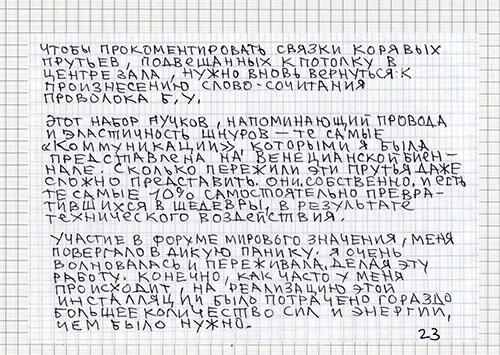 ЧТОБЫ ПРОКОМЕНТИРОВАТЬ СВЯЗКИ КОРЯВЫХ
ПРУТЬЕВ, ПОДВЕШАННЫХ К ПОТОЛКУ В
ЦЕНТРЕ ЗАЛА, НУЖНО ВНОВЬ ВЕРНУТЬСЯ К
ПРОИЗНЕСЕНИЮ СЛОВО-СОЧИТАНИЯ
ПРОВОЛОКА Б,У,
ЭТОТ НАБОР ПУЧКОВ, НАПОМИНАЮЩИЙ ПРОВОДА
И ЭЛАСТИЧНОСТЬ ШНУРОВ – ТЕ САМЫЕ
«КОММУНИКАЦИИ», КОТОРЫМИ Я БЫЛА
ПРЕДСТАВЛЕНА НА ВЕНЕЦИАНСКОЙ БИЕН-
НАЛЕ. СКОЛЬКО ПЕРЕЖИЛИ ЭТИ ПРУТЬЯ ДАЖЕ
СЛОЖНО ПРЕДСТАВИТЬ. ОНИ, СОБСТВЕННО, И ЕСТЬ
ТЕ САМЫЕ 40% САМОСТОЯТЕЛЬНО ПРЕВРА-
ТИВШИХСЯ В ШЕДЕВРЫ, В РЕЗУЛЬТАТЕ
ТЕХНИЧЕСКОГО ВОЗДЕЙСТВИЯ.
УЧАСТИЕ В ФОРУМЕ МИРОВОГО ЗНАЧЕНИЯ, МЕНЯ
ПОВЕРГАЛО В ДИКУЮ ПАНИКУ. Я ОЧЕНЬ
ВОЛНОВАЛАСЬ И ПЕРЕЖИВАЛА, ДЕЛАЯ ЭТУ
РАБОТУ. КОНЕЧНО, КАК ЧАСТО У МЕНЯ
ПРОИСХОДИТ, НА РЕАЛИЗАЦИЮ ЭТОЙ
ИНСТАЛЛЯЦИИ БЫЛО ПОТРАЧЕНО ГОРАЗДО
БОЛЬШЕЕ КОЛИЧЕСТВО СИЛ И ЭНЕРГИИ,
ЧЕМ БЫЛО НУЖНО.
23